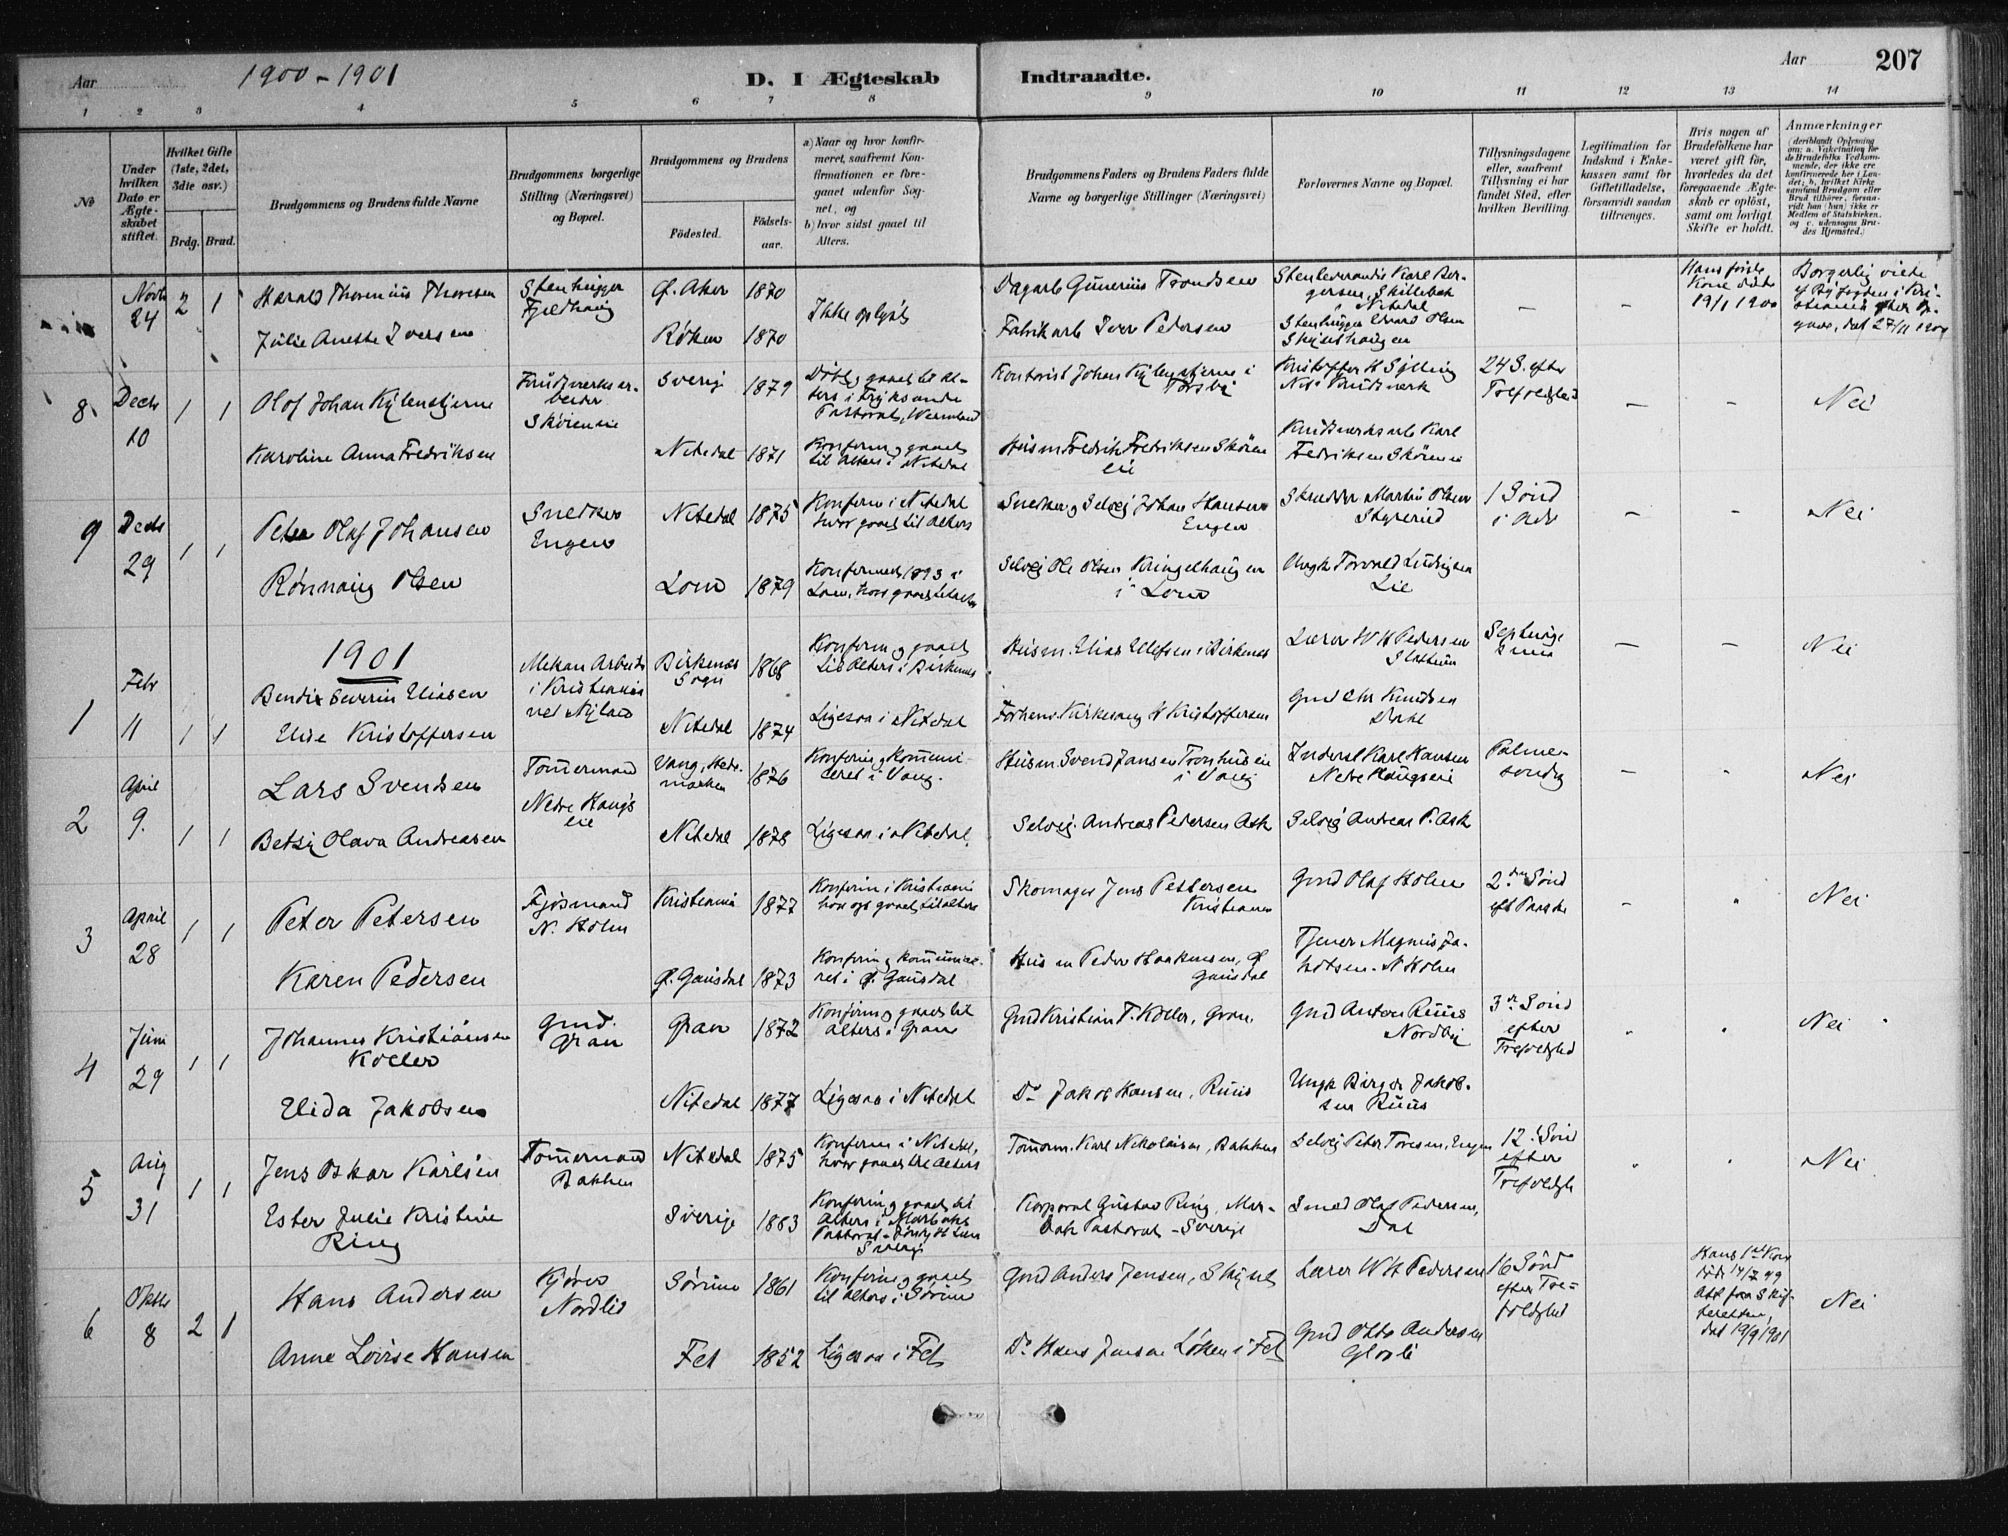 Aar 1900 - 1901
D. I Ægteskab Indtraadte.
Aar 207
1 2 3 4 5 6 7 8 9 10 11 12 13 14
No
Under hvilken Dato er Ægteskabet stiftet.
Hvilket Gifte (1ste, 2det, 3die osv.)
Brdg. Brud.
Brudgommens og Brudens fulde Navne
Brudgommens borgerlige Stilling (Næringsvei) og Bopæl.
Brudgommens og Brudens
Fødested. Fødselsaar.
a) Naar og hvor konfirmeret, saafremt Konfirmationen er foregaaet udenfor Sognet, og
b) hvor sidst gaaet til Alters.
Brudgommens Faders og Brudens Faders fulde Navne og borgerlige Stillinger (Næringsvei)
Forlovernes Navne og Bopæl.
Tillysningsdagene eller, saafremt Tillysning ei har fundet Sted, efter hvilken Bevilling.
Legitimation for Indskud i Enkekassen samt for Giftetilladelse, forsaavidt saadan tiltrænges.
Hvis nogen af Brudefolkene har været gift før, hvorledes da det foregaaende Ægteskab er opløst, samt om lovligt Skifte er holdt.
Anmærkninger
(deriblandt Oplysning om: a. Vakcination for de Brudefolks Vedkommende, der ikke ere konfirmerede her i Landet; b. hvilket Kirkesamfund Brudgom eller Brud tilhører, forsaavidt han (hun) ikke er Medlem af Statskirken, og c. udensogns Brudes Hjemsted.)
Novb 24 2 1
Harald Thorenius Thoresen
Stenhugger Fjeldhaug
Ø. Aker 1870
Ikke oplyst
Dagarb Gunerius Trondsen
Stenleverandør Karl Bergersen, Skillebek Nitedal
—
—
Hans første Kone døde 19/1 1900
Borgerlig viede af Byfogden i Kristiania efter Opgave, dat 27/11 1900
Julie Anette Iversen
Røken 1870
Fabrikarb Iver Pedersen
Stenhugger Edvard Olsen
8 Decb 10 1 1
Olof Johan Kylenstjerne
Krudtverksarbeider Skøieneie
Sverig 1879
Døbt og gaaet til Alters i Fryksande Pastorat, Wermland
Kontorist Johan Kylenstjerne i Torsby
Kristoffer H Sylling Nit. Krudtverk
24 S. efter Trefoldighed
— - Nei
Karoline Anna Fredriksen
Nitedal 1871
Konfirm og gaaet til Alters i Nitedal
Husm Fredrik Fredriksen Skøieneie
Krudtverksarb Karl Fredriksen Skøienei
9 Decb 29 1 1
Peter Olaf Johansen
Snedker Engen
Nitedal 1875
Konfirm i Nitedal hvor gaaet til Alters
Snedker og Selvej Johan Hansen Engen
Skrædder Martin Olsen
1 Sønd i Adv
— - Nei
Rønnaug Olsen
Lom 1879
Konfirmert 1893 i Lom, hvor gaaet til Alters
Selvej Ole Olsen Kringelhaugen i Lom
Ungk Torvald Ludvigsen Lie
1901
1 Febr 11 1 1
Bendix Severin Eliasen
Mekan Arbeider i Kristiania ved Nyland
Birkenes Sogn 1868
Konfirm og gaaet til Alters i Birkenes
Husm. Elias Ellefsen i Birkenes
Lærer W H Pedersen Slattum
— - Nei
Elise Kristoffersen
Nitedal 1874
Ligesaa i Nitedal
Forhenv. Kirkesang H Kristoffersen
Gmd Chr Knudsen Dahl
2 April 9. 1 1
Lars Svendsen
Tømmermand Nedre Haugseie
Vang, Hedemarken 1876
Konfirm og kommuniceret i Vang.
Husm Svend Jansen Tronhuseie i Vang
Inderst Karl Hansen Nedre Haugseie
Palmesøndag
— - Nei
Betsy Olava Andreasen
Nitedal 1878
Ligesaa i Nitedal.
Selvej. Andreas Pedersen Ask
Selvej Andreas P. Ask
3 April 28 1 1
Peter Petersen
Fjøsmand N. Holm
Kristiania 1877
Konfirm i Kristiania hvor og gaaet til Alters
Skomager Jens Pettersen Kristiania
Gmd Olaf Holm
2den Sønd eft Paaske
- - Nei
Karen Pedersen
Ø. Gausdal 1873
Konfirm og kommuniceret i Ø. Gausdal
Husm Peder Haakensen, Ø Gausdal
Tjener Magnus Jakobsen. N Holm
4 Juni 29 1 1
Johannes Kristiansen Koller
Gmd. Gran
Gran 1872
Konfirm og gaaet til Alters i Gran
Gmd Kristian T. Koller, Gran.
Gmd Anton Ruus Nordby
3die Sønd efter Trefoldighed
Nei
Elida Jakobsen
Nitedal 1877
Ligesaa i Nitedal
Do Jakob Hansen, Ruus
Ungk Birger Jakobsen Ruus
5 Aug 31 1 1
Jens Oskar Karlsen
Tømmermand Bakken
Nitedal 1875
Konfirm i Nitedal, hvor gaaet til Alters
Tømmrm. Karl Nikolaisen, Bakken
Selvej Peter Toresen, Engen
12. Sønd efter Trefoldigh
Nei
Ester Julie Kristine Ring
Sverige 1883
Konfirm og gaaet til Alters i Marbäks Pastorat - Sverige
Korporal Gustav Ring, Marbäk Pastorat - Sverige
Smed Olaf Pedersen, Dal
6 Oktb 8 2 1
Hans Andersen
Kjører Nordlie
Sørum 1861
Konfirm og gaaet til Alters i Sørum
Gmd Anders Jensen, Skjuset
Lærer W H Pedersen
16 Sønd efter Trefoldighed
Hans 1ste Kone døde 14/7 99 Att fra Skifteretten, dat 19/9 1901
Nei
Anne Lovise Hansen
Fet 1852
Ligesaa i Fet
Do Hans Jensen Løken i Fet
Gmd Otto Andersen Glosli